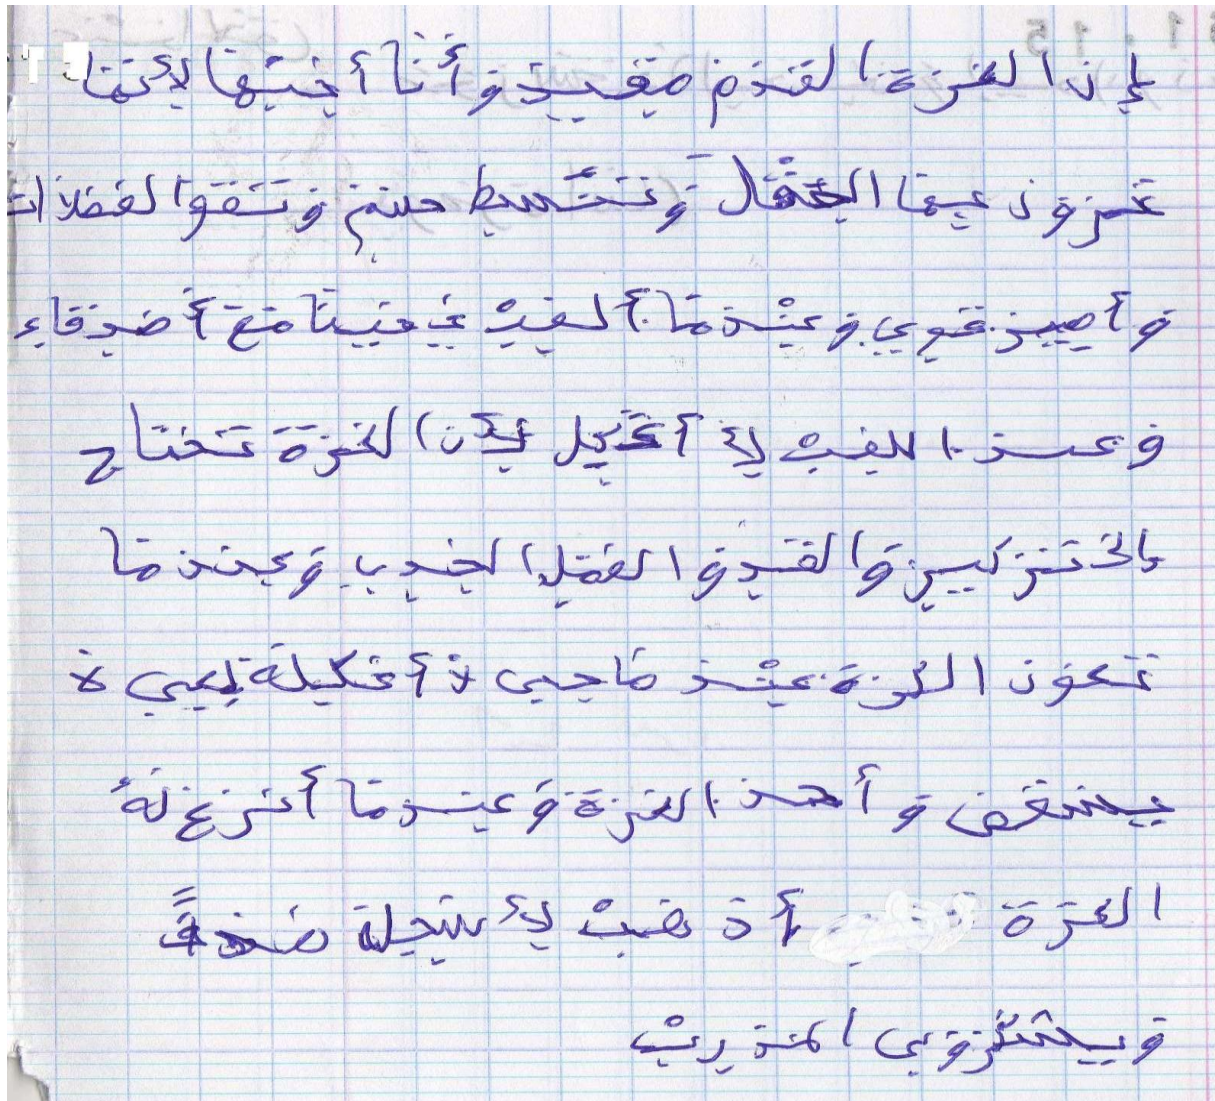 إن الكرة القدم مفيد و أنا أحبها لأنها
تمرون فيها العضال و تنشيط جسم و تقوا لعضلات
و أصير قوي و عندما ألعب في فيينا مع أصدقاء
و عند اللعب لا أتكل لأن الكرة تحتاج
بالتركيز و القيد و العمل الجديب و عندما
تكون الكرة عند صاحبي لا أتكيلة لكي لا
يستغض و أخذ الكرة و عندما أنزع له
الكرة أذهب لأسجلة ضدف
و يشكروني المدريب